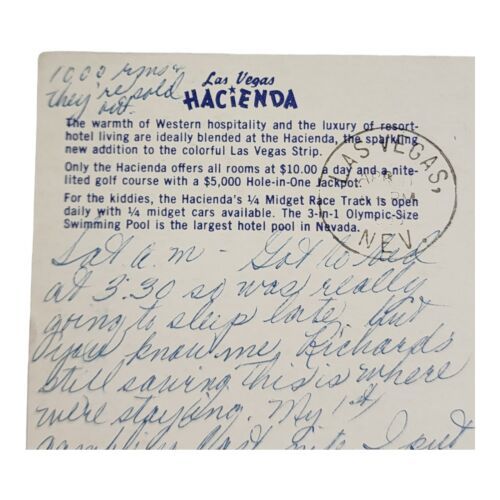 1000 rms &
they're sold
out.
Las Vegas
HACiENDA
The warmth of Western hospitality and the luxury of resort-
hotel living are ideally blended at the Hacienda, the sparkling
new addition to the colorful Las Vegas Strip.
Only the Hacienda offers all rooms at $10.00 a day and a nite-
lited golf course with a $5,000 Hole-in-One Jackpot.
For the kiddies, the Hacienda's ¼ Midget Race Track is open
daily with ¼ midget cars available. The 3-in-1 Olympic-Size
Swimming Pool is the largest hotel pool in Nevada.
LAS VEGAS,
PM
NEV.
Sat a.m - Got to bed
at 3:30 so was really
going to sleep late. But
you know me. Richards
still sawing this is where
were staying. My 1st
gambling last nite I put